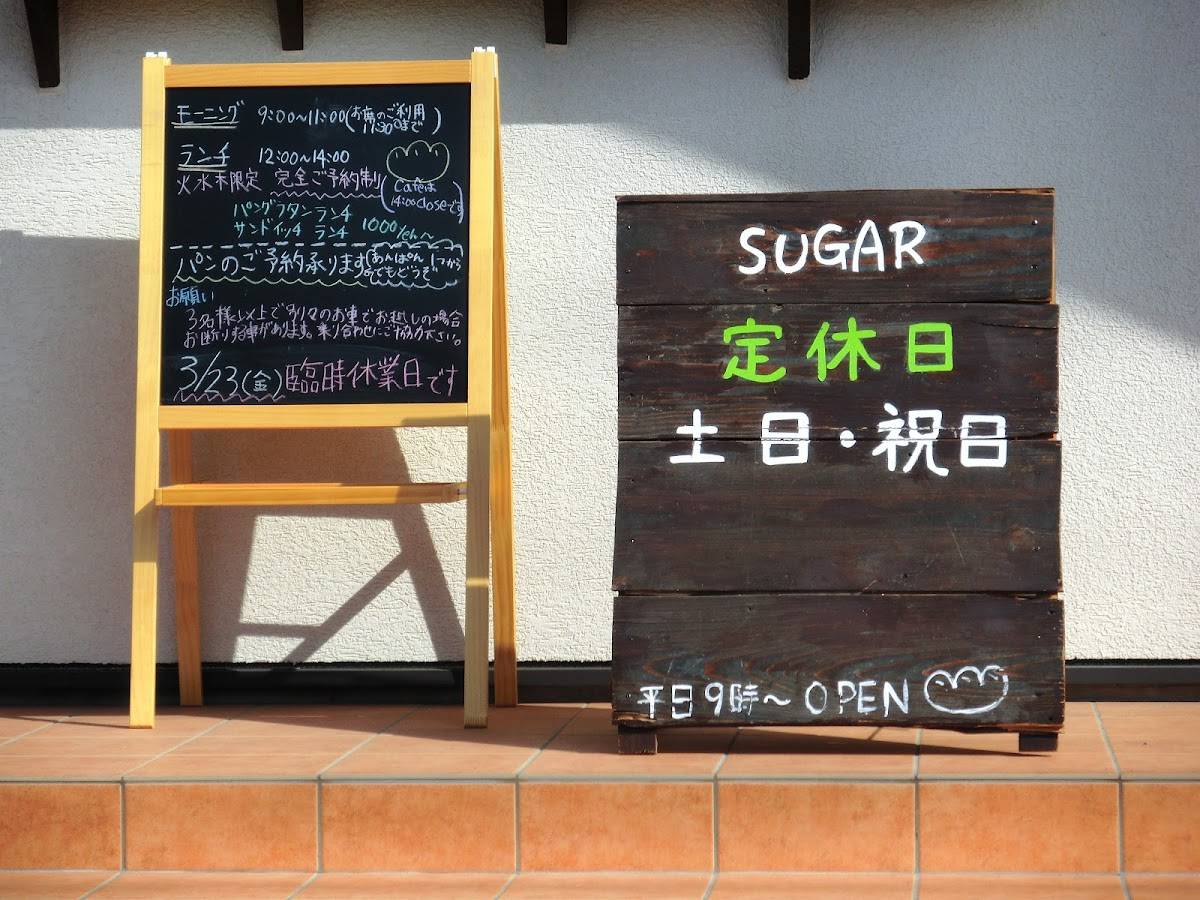 モーニング 9:00~11:00(お席のご利用 11:30まで)
ランチ 12:00~14:00
火水木限定 完全ご予約制(Cafeは 14:00closeです)
パングラタンランチ
サンドイッチ ランチ 1000yen~
パンのご予約承ります(あんぱん1つから でもどうぞ)
お願い
3名様以上で別々のお車でお越しの場合
お断りする事があります。乗り合わせにご協力下さい。
3/23(金)臨時休業日です
SUGAR
定休日
土日・祝日
平日9時~OPEN